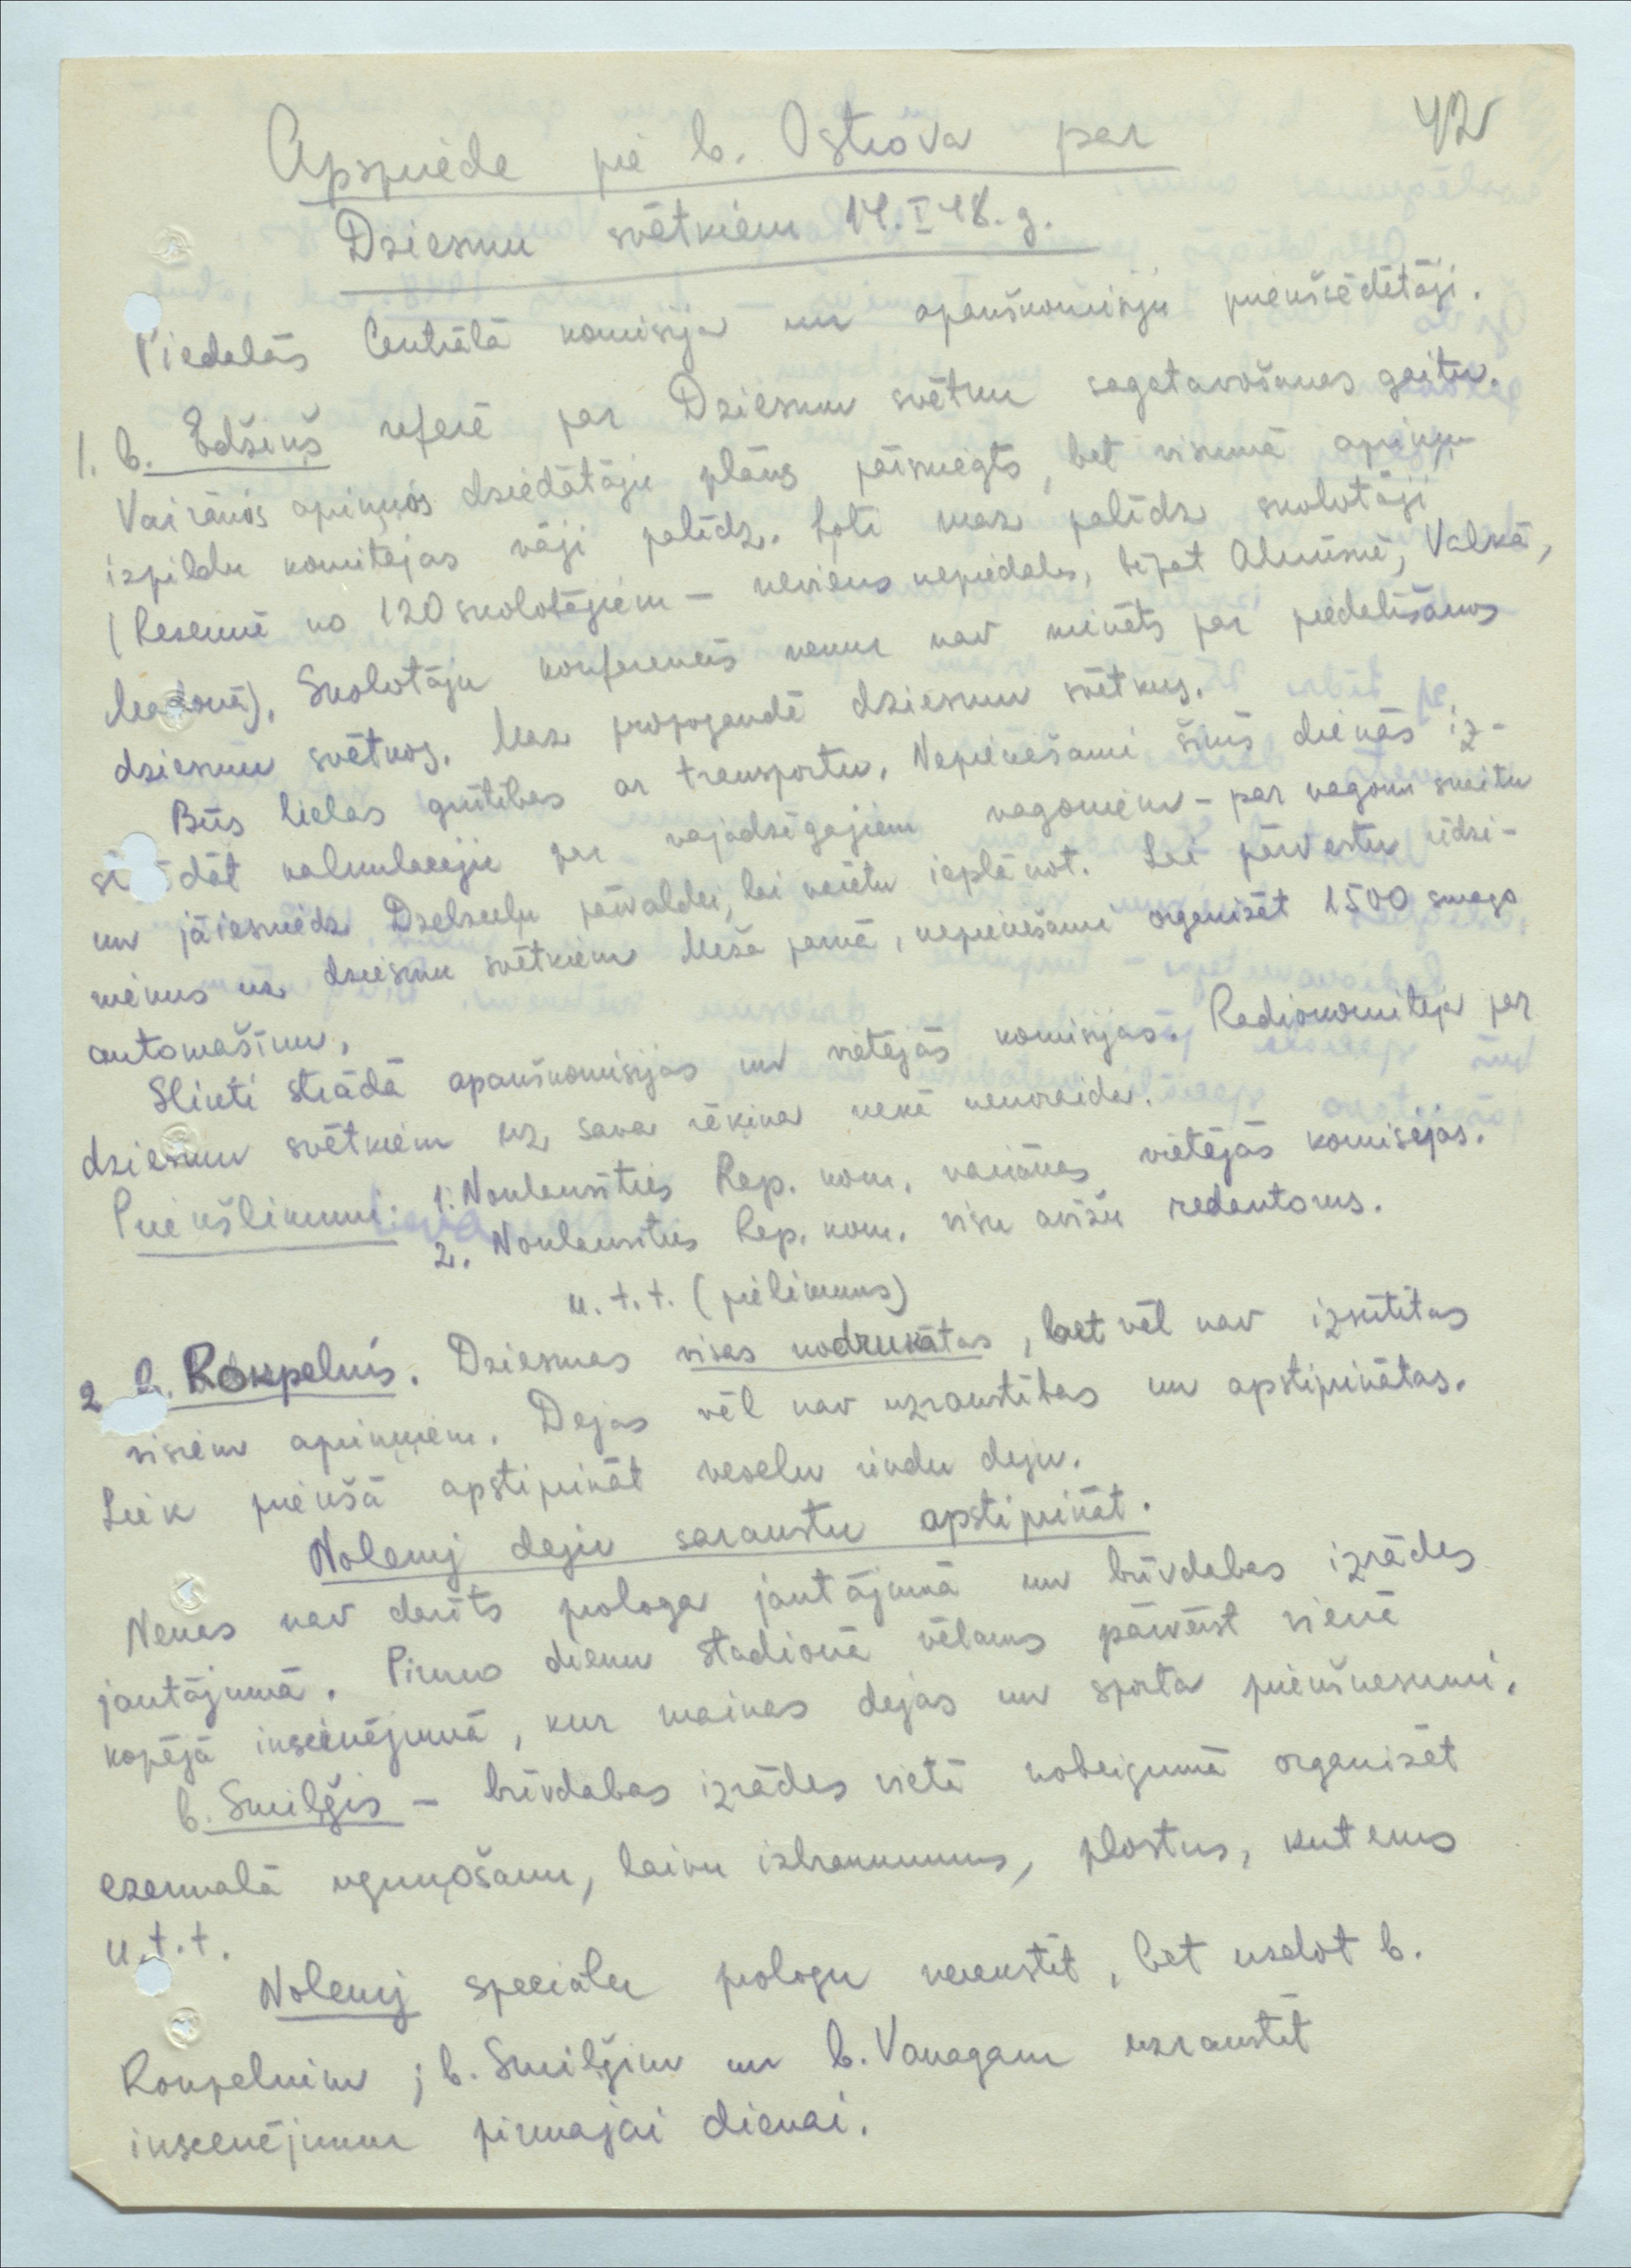 42
Apspriede pie b. Ostrova par
Dziesmu svētkiem 14.I 48. g.
Piedalās Centrālā komisija un apakškomisiju priekšsēdētāji.
1. b. Ēdžiņš referē par Dziesmu svētku sagatavošanas gaitu.
Vairākos apriņķos dziedātāju plāns pārsniegts, bet vispār apriņķu
izpildu komitejas vāji palīdz. Ļoti maz palīdz skolotāji
(Rēzeknē no 120 skolotājiem – neviens nepiedalās, tāpat Alūksnē, Valkā,
Madonā). Skolotāju konferencēs nekur nav minēts par piedalīšanos
dziesmu svētkos. Maz propogandē dziesmu svētkus.
Būs lielas grūtības ar transportu. Nepieciešami šinīs dienās iz-
strādāt kalkulāciju par vajadzīgajiem vagoniem – par vagonu skaitu
un jāiesniedz Dzelzceļu pārvaldei, lai varētu ieplānot. Lai pārvestu rīdzi-
niekus uz dziesmu svētkiem Meža parkā, nepieciešami organizēt 1500 smago
automašīnu.
Slikti strādā apakškomisijas un vietējās komisijas. Radiokomiteja par
dziesmu svētkiem uz sava rēķina nekā nenoraida.
Priekšlikumi: 1. Noklausīties Rep. kom. vairākas vietējās komisijas.
2. Noklausīties Rep. kom. visu avīžu redaktorus.
u.t.t. (pielikums)
2 b. Rokpelnis. Dziesmas visas nodrukātas, bet vēl nav izsūtītas
visiem apriņķiem. Dejas vēl nav uzrakstītas un apstiprinātas.
Liek priekšā apstiprināt veselu rindu deju.
Nolemj deju sarakstu apstiprināt.
Nekas nav darīts prologa jautājumā un brīvdabas izrādes
jautājumā. Pirmo dienu stadionā vēlams pārvērst vienā
kopējā inscinējumā, kur mainas dejas un sporta priekšnesumi.
b. Smiļģis – brīvdabas izrādes vietā nobeigumā organizēt
ezermalā uguņošanu, laivu izbraukumus, plostus, kuterus
u.t.t.
Nolemj speciālu prologu nerakstīt, bet uzdot b.
Rokpelnim ; b. Smiļģim un b. Vanagam uzrakstīt
inscenējumu pirmajai dienai.